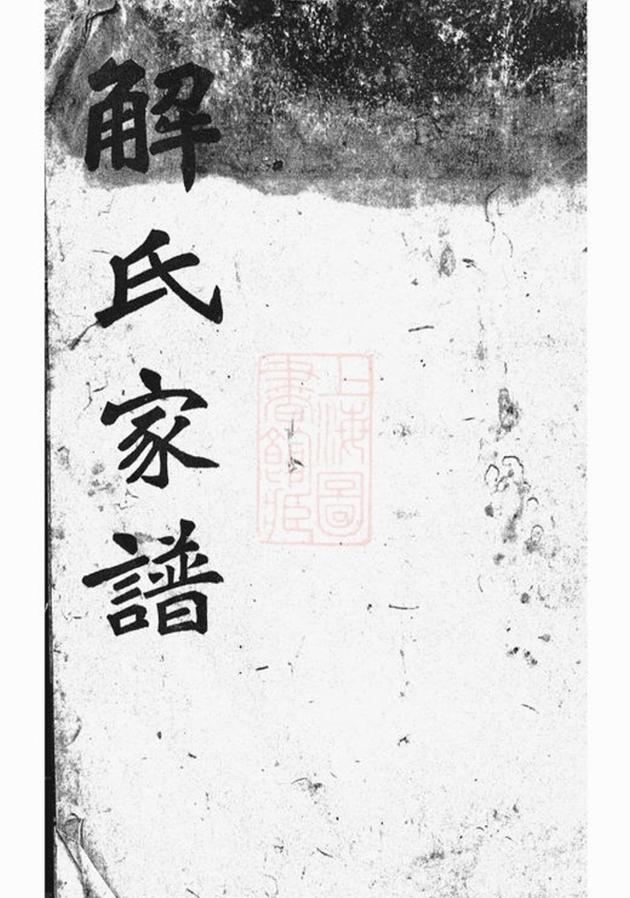 解氏家譜
上海圖
書館藏